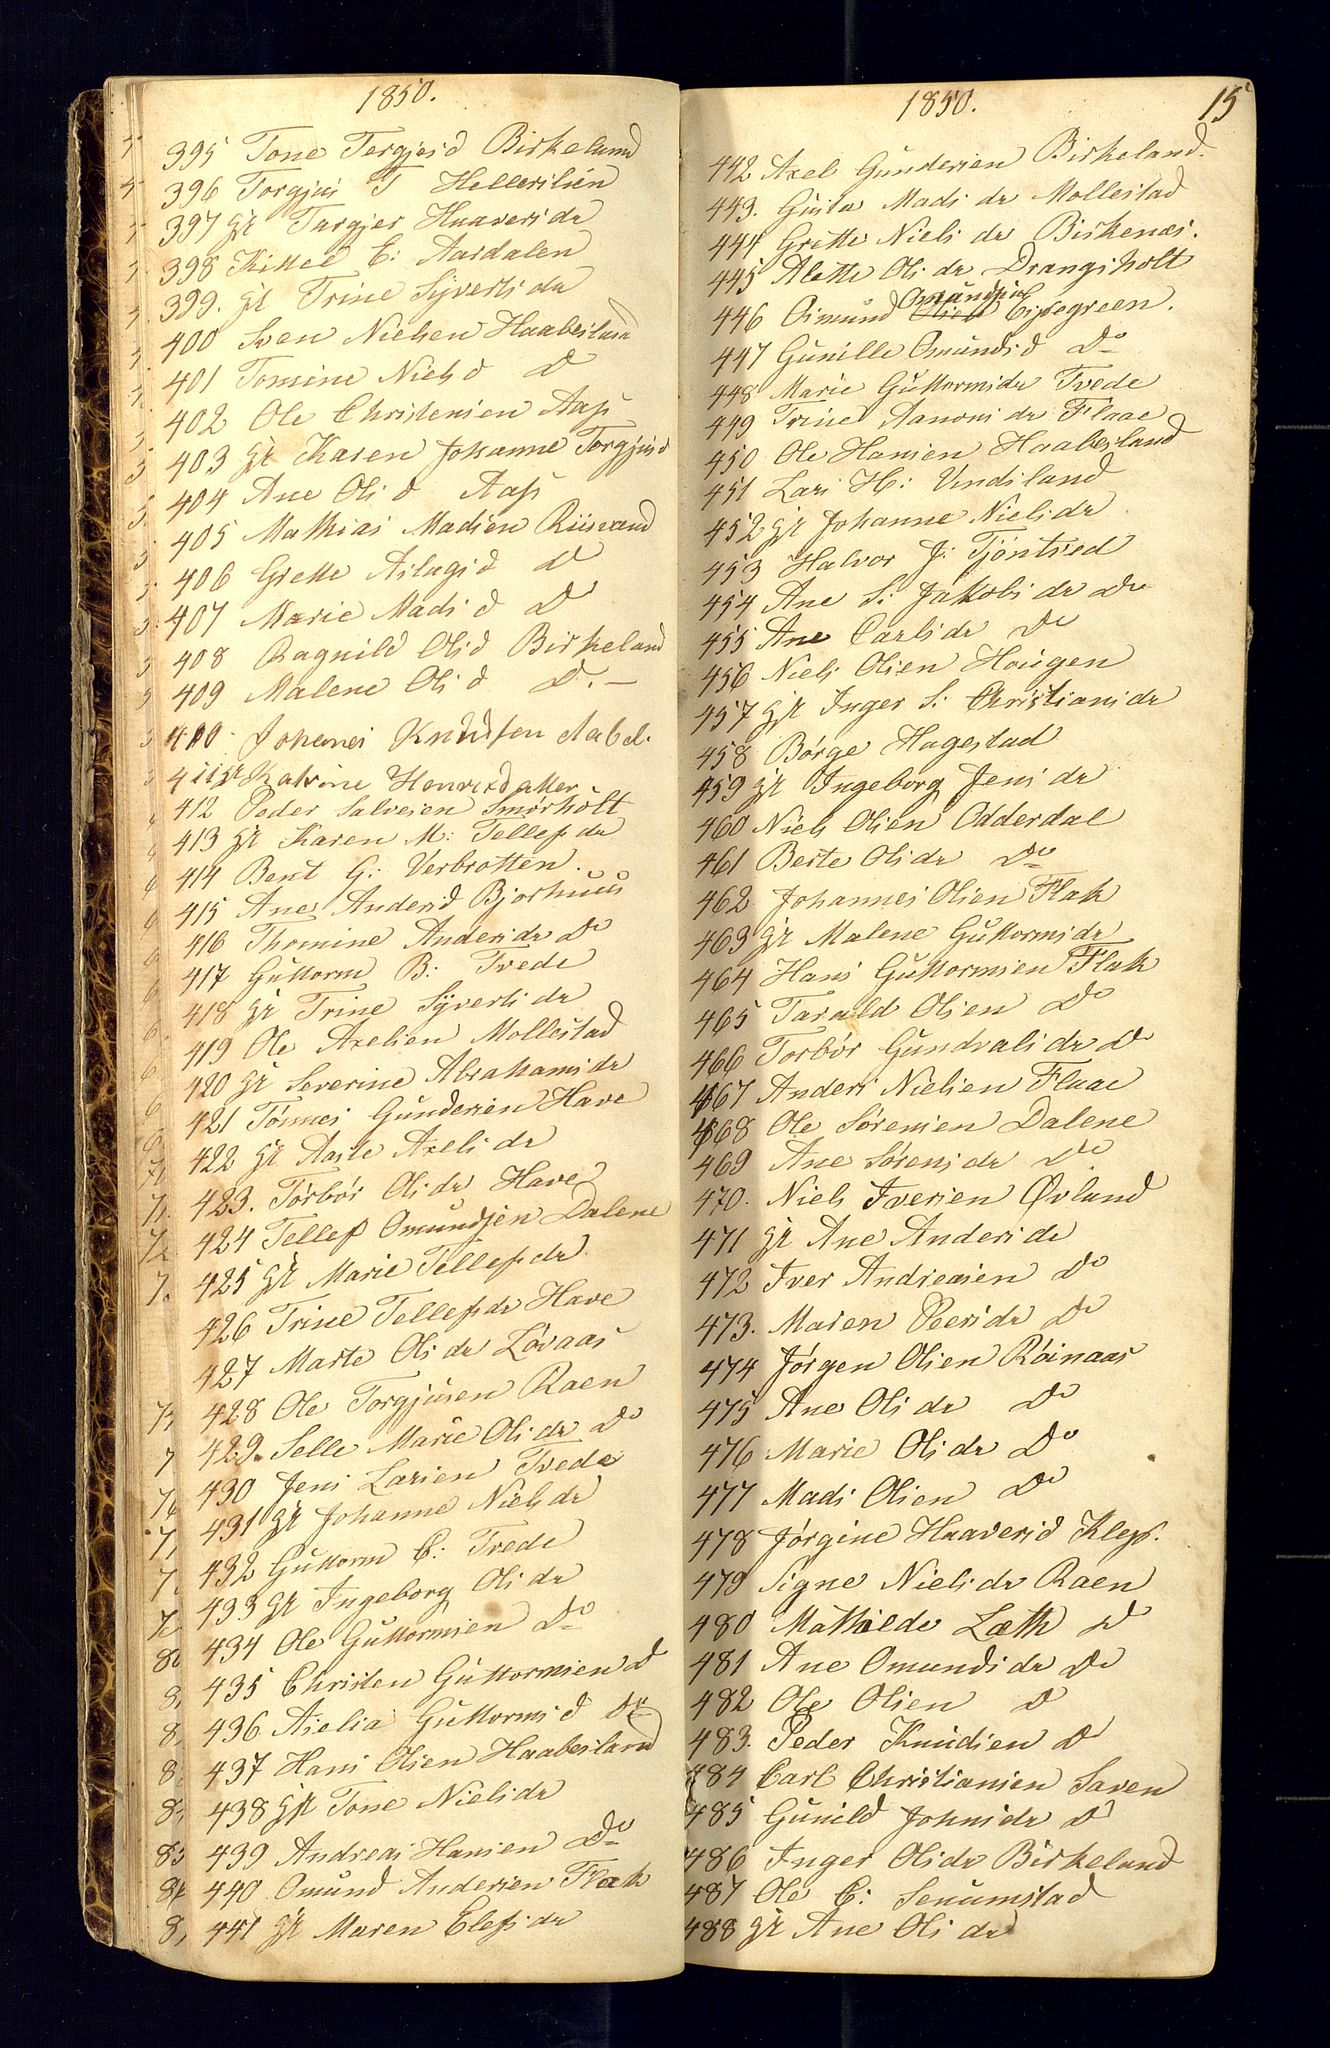 1850.
395 Tone Tergjesd Birkeland
396 Torgjus T Hellerslien
397 gr Targjer Haaversdr
398 Kittel C: Aardalen
399. gr Trine Syvertsdr
400 Sven Nielsen Haabesland
401 Tomine Nielsd D
402 Ole Christensen Aas
403 gr Karen Johanne Torgjusd
404 Ane Olsd Aas
405 Mathias Madsen Riisvand
406 Grette Aslagsd D
407 Marie Madsd D
408 Ragnild Olsd Birkeland
409 Malene Olsd D.
410 Johanes Knudsen Aabel.
411 gr Katrine Henriksdatter
412 Peder Salvesen Smørholt
413 gr Karen M: Tellefsdr
414 Bent G: Verbrotten.
415 Ane Andersd Bjorhuus
416 Thomine Andersdr Do
417 Guttorm B: Tvede
418 gr Trine Syvertsdr
419 Ole Axelsen Mollestad
420 gr Severine Abrahamsdr
421 Tønnes Gundersen Have
422 gr Aaste Axelsdr
423. Torbor Olsdr Have
424 Tellef Omundsen Dalene
425 gr Marie Tellefsdr
426 Trine Tellefsdr Have
427 Marte Olsdr Løvaas
428 Ole Torgjusen Raen
429. Selle Marie Olsdr Do
430 Jens Larsen Tvede
431 gr Johanne Nielsdr
432 Guttorm C: Tvede
433 gr Ingeborg Olsdr
434 Ole Guttormsen Do
435 Christen Guttormsen D
436 Aselia Guttormsd Do
437 Hans Olsen Haabesland
438 gr Tone Nielsdr
439 Andreas Hansen Do
440 Omund Andersen Flak
441 gr Maren Elefsdr
1850. 15
442 Axel Gundersen Birkeland.
443. Gusta Madsdr Mollestad
444 Grette Nielsdr Birkenæs.
445 Alette Olsdr Drangsholt
Omundsen
446 Osmund Engegreen.
447 Gunille Omundsd Do
448 Marie Guttormsdr Tvede
449 Trine Aanonsdr Flaae
450 Ole Hansen Haabesland
451 Lars H: Vindsland
452 gr Johanne Nielsdr
453 Halvor J: Tjøntved
454 Ane S: Jakobsdr Do
455 Ane Carlsdr Do
456 Niels Olsen Haugen
457 gr Inger S: Christiansdr
458 Børge Hagestad
459 gr Ingeborg Jensdr
460 Niels Olsen Odderdal
461 Berte Olsdr Do
462 Johannes Olsen Flak
463 gr Malene Guttormsdr
464 Hans Guttormsen Flak
465 Tarald Olsen Do
466 Torbør Gundvalsdr Do
467 Anders Nielsen Flaae
468 Ole Sørensen Dalene
469 Ane Sørensdr Do
470. Niels Iversen Øvland
471 gr Ane Andersdr
472 Iver Andreasen Do
473. Maren Peersdr Do
474 Jørgen Olsen Røinaas
475 Ane Olsdr Do
476 Marie Olsdr Do
477 Mads Olsen Do
478 Jørgine Haaversd Klep.
479 Signe Nielsdr Raen
480 Mathilde Læth D
481 Ane Omundsdr Do
482 Ole Olsen D
483. Peder Knudsen D
484 Carl Christiansen Saven
485 Gunild Johnsdr D
486 Inger Olsdr Birkeland
487 Ole C: Senumstad
488 gr Ane Olsdr